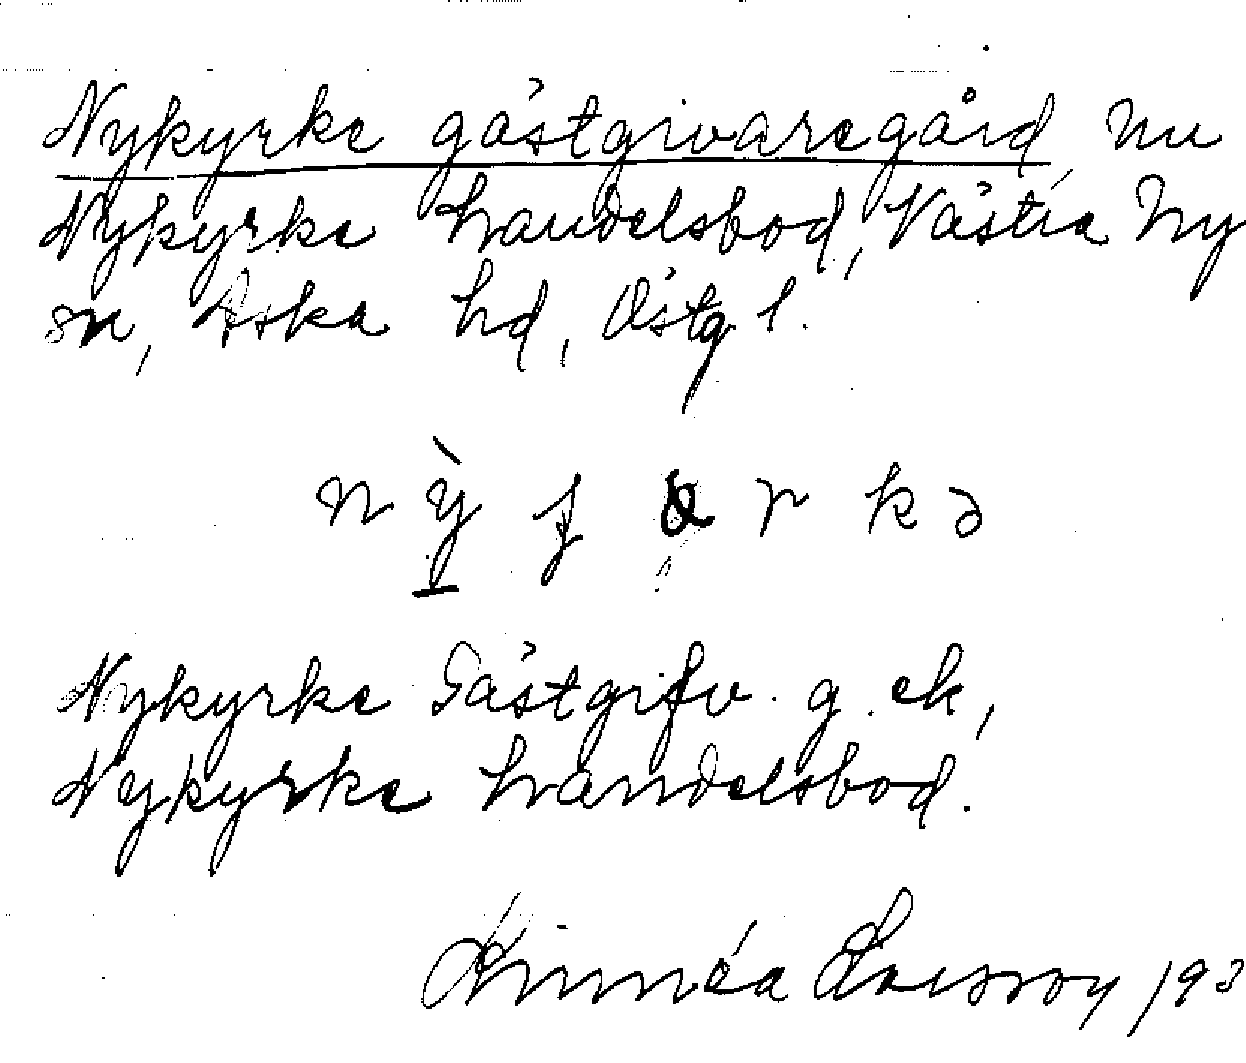 Nykyrke gästgivaregård, nu
Nykyrke handelsbod, Västra Ny
sn, Aska hd, Östg l.
Nykyrke Gästgifv. g. ek,
Nykyrke handelsbod.
Linnéa Larsson 193